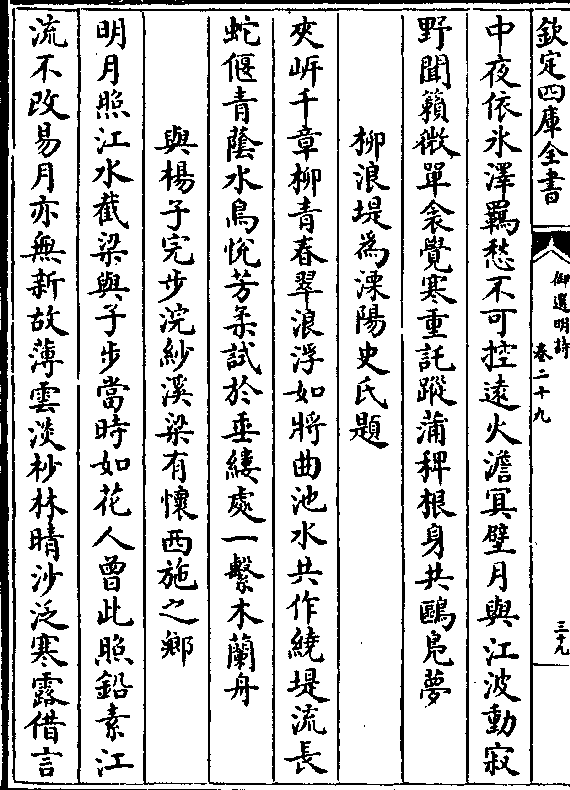 欽定四庫全書
御選明詩
卷二十九
三十九
中夜依氷澤羇愁不可控遠火澹冥壁月與江波動寂
野聞籟微單衾覺寒重託蹤蒲稗根身共鷗鳬夢
柳浪堤為溧陽史氏題
夾岍千章柳青春翠浪浮如將曲池水共作繞堤流長
蛇偃青蔭水鳥悅芳柔試於垂縷處一繫木蘭舟
與楊子完步浣紗溪梁有懷西施之鄉
明月照江水截梁與子步當時如花人曾此照鉛素江
流不改易月亦無新故薄雲淡杪林晴沙泛寒露借言